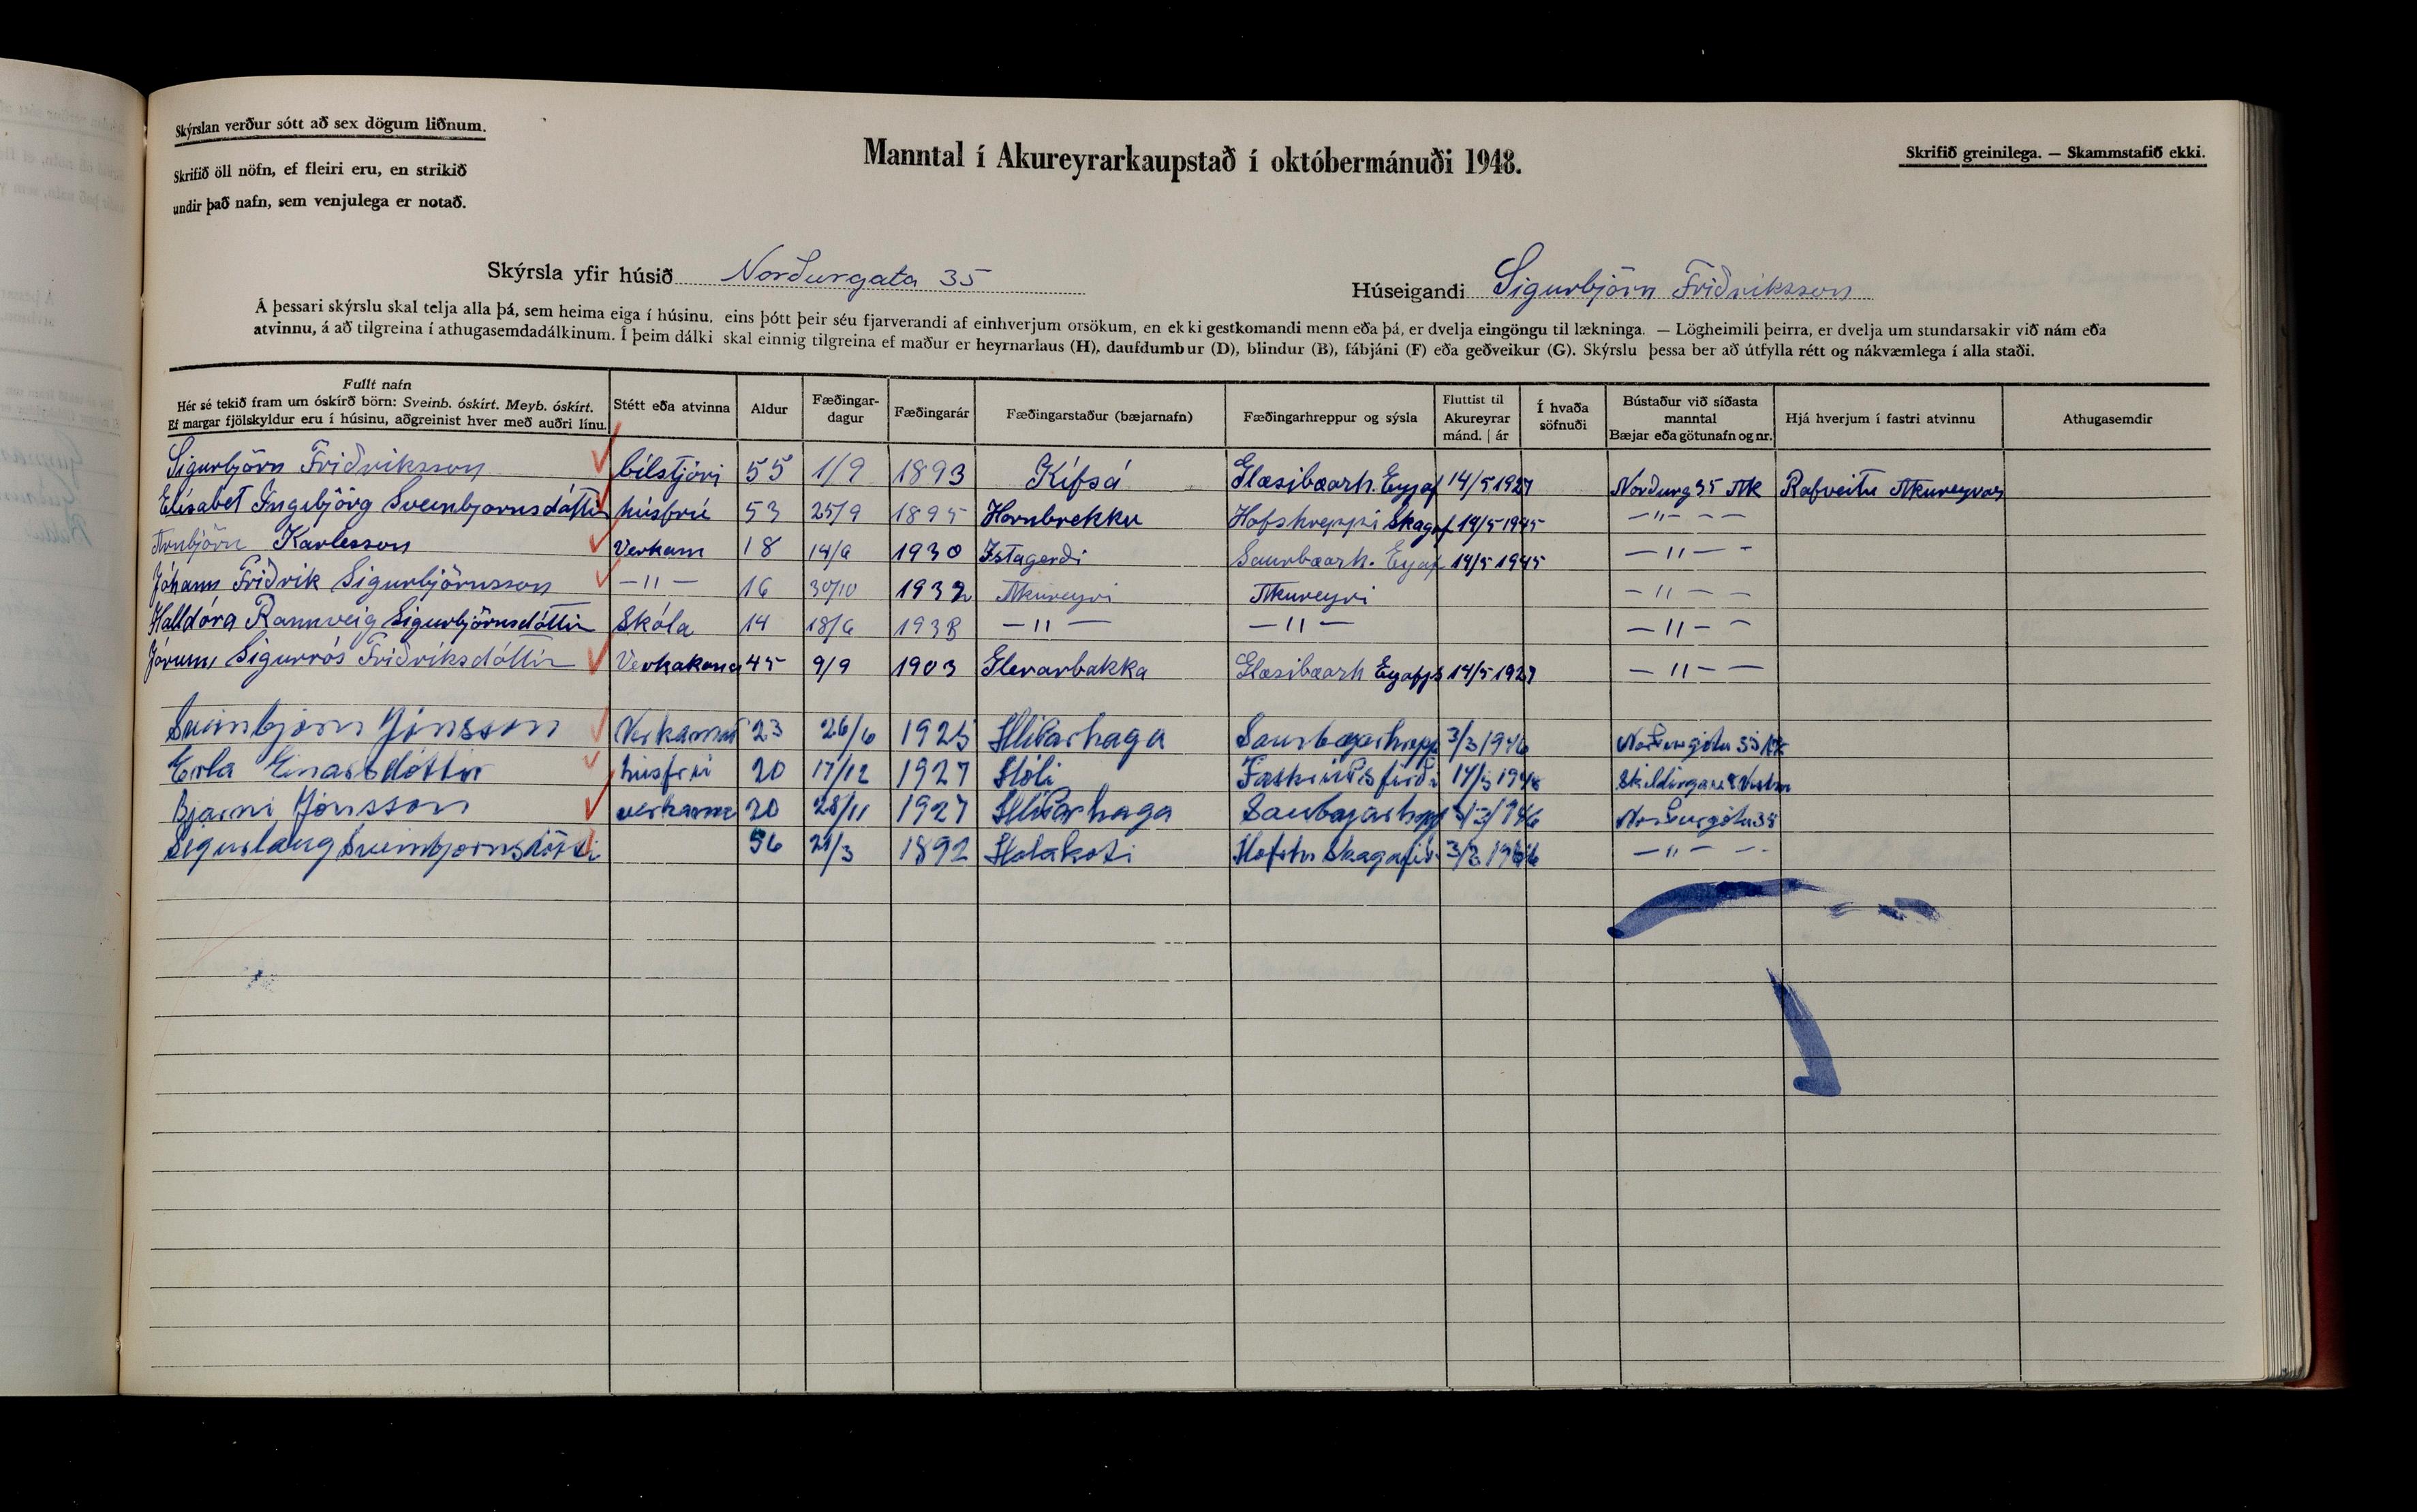 Skýrslan verður sótt að sex dögum liðnum.
Skrifið öll nöfn, ef fleiri eru, en strikið
undir það nafn, sem venjulega er notað.
Manntal í Akureyrarkaupstað í októbermánuði 1948.
Skrifið greinilega. — Skammstafið ekki.
Skýrsla yfir húsið Norðurgata 35
Húseigandi Sigurbjörn Friðriksson
Á þessari skýrslu skal telja alla þá, sem heima eiga í húsinu, eins þótt þeir séu fjarverandi af einhverjum orsökum, en ekki gestkomandi menn eða þá, er dvelja eingöngu til lækninga. — Lögheimili þeirra, er dvelja um stundarsakir við nám eða
atvinnu, á að tilgreina í athugasemdadálkinum. Í þeim dálki skal einnig tilgreina ef maður er heyrnarlaus (H), daufdumbur (D), blindur (B), fábjáni (F) eða geðveikur (G). Skýrslu þessa ber að útfylla rétt og nákvæmlega í alla staði.
Fullt nafn
Hér sé tekið fram um óskírð börn: Sveinb. óskírt. Meyb. óskírt.
Ef margar fjölskyldur eru í húsinu, aðgreinist hver með auðri línu.
Stétt eða atvinna
Aldur
Fæðingar-
dagur
Fæðingarár
Fæðingarstaður (bæjarnafn)
Fæðingarhreppur og sýsla
Fluttist til
Akureyrar
mánd. | ár
Í hvaða
söfnuði
Bústaður við síðasta
manntal
Bæjar eða götunafn og nr.
Hjá hverjum í fastri atvinnu
Athugasemdir
Sigurbjörn Friðriksson bílstjóri 55 1/9 1893 Kífsá Glæsibæarh. Eyjaf 14/5 1927 Norðurg 35 Ak Rafveitu Akureyrar
Elísabet Ingibjörg Sveinbjornsdóttir húsfrú 53 25/9 1895 Hornbrekku Hofshreppi Skagaf 14/5 1945 — " — —
Arnbjörn Karlesson Verkam 18 14/9 1930 Ystagerði Saurbæarh. Eyjaf 14/5 1945 — " — -
Jóhann Friðrik Sigurbjörnsson — " — 16 30/10 1932 Akureyri Akureyri — " — —
Halldóra Rannveig Sigurbjörnsdóttir Skóla 14 18/6 193 — " — — " — — " — —
Jórunn Sigurrós Friðriksdóttir Verkakona 45 9/9 1903 Glerarbakka Glæsibæarh Eyafjs 14/5 1927 — " — —
Sveinbjörn Jónsson Verkamað 23 26/6 1925 Hlíðarhaga Saurbæjarhrepp 3/3 1946 Norðurgötu 35 Ak
Erla Einarsdóttir húsfrú 20 17/12 1927 Hóli Fáskrúðsfirði 17/5 1948
Bjarni Jónsson verkama 20 28/11 1927 Hlíðarhaga Saubæjarhrpp 1946 Norðurgötu 35
Sigurlaug Sveinbjornsdóttir 56 1892 Holakoti Hofshr Skagafir. 3/3 1946 — " — —